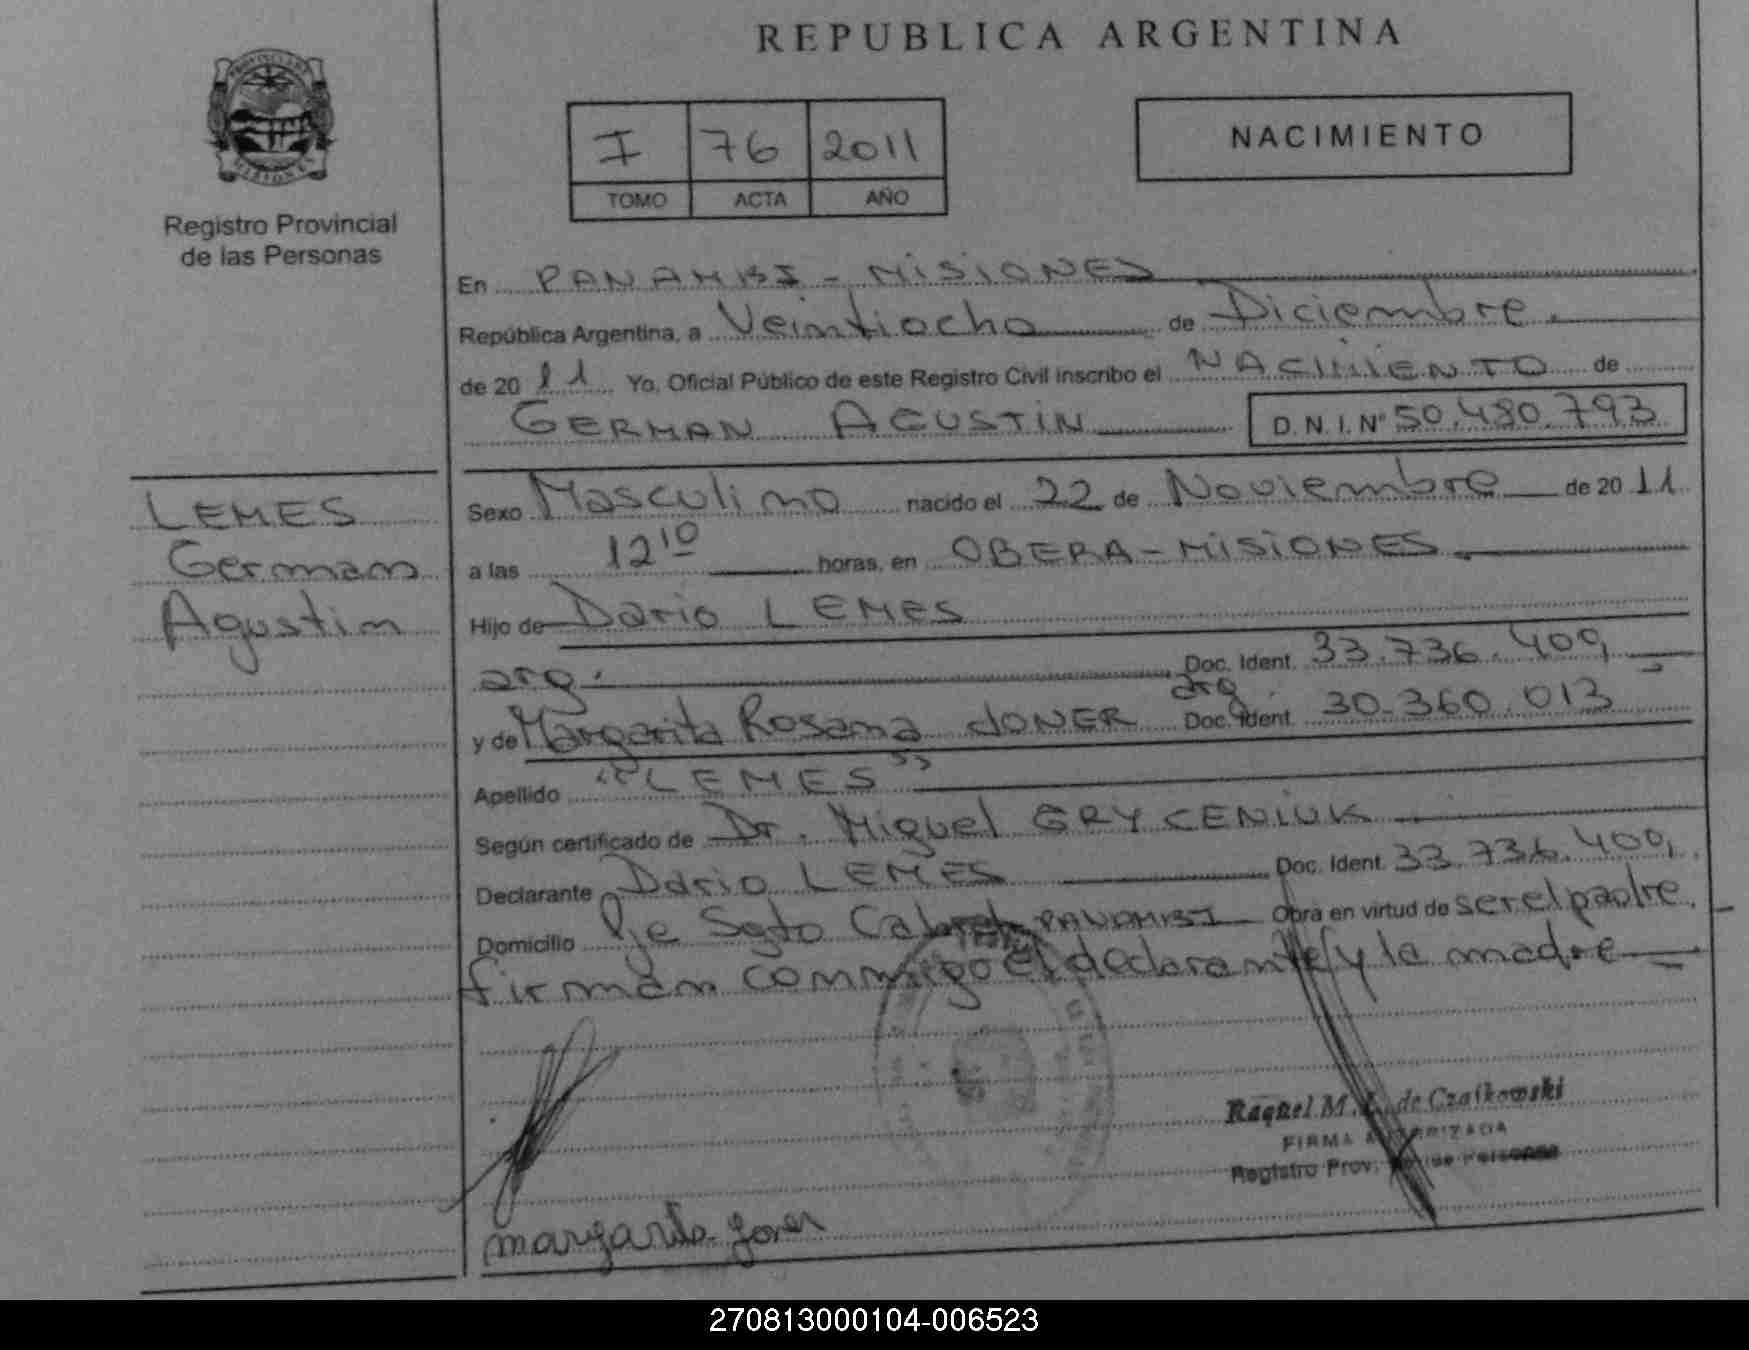 REPUBLICA ARGENTINA
PROVINCIA DE
MISIONES
Registro Provincial
de las Personas
I 76 2011
TOMO ACTA AÑO
NACIMIENTO
En PANAMBI - MISIONES
República Argentina, a Veintiocho de Diciembre.
de 20 11 Yo, Oficial Público de este Registro Civil inscribo el NACIMIENTO de
GERMAN AGUSTIN D.N.I.Nº 50.480.793
LEMES
German
Agustin
Sexo Masculino nacido el 22 de Noviembre de 20 11
a las 12 10 horas, en OBERA - MISIONES.
Hijo de Dario LEMES
arg. Doc. Ident. 33.736.409
y de Margarita Rosana JONER arg. Doc. Ident. 30.360.013
Apellido "LEMES"
Según certificado de Dr. Miguel GRYCENIUK
Declarante Dario LEMES Doc. Ident. 33.736.409
Domicilio Pje Sgto Cabral PANAMBI Obra en virtud de ser el padre.
firman conmigo el declarante y la madre
Raquel M. de Czaikowski
FIRMA AUTORIZADA
Registro Prov. de las Personas
margarita joner
270813000104-006523